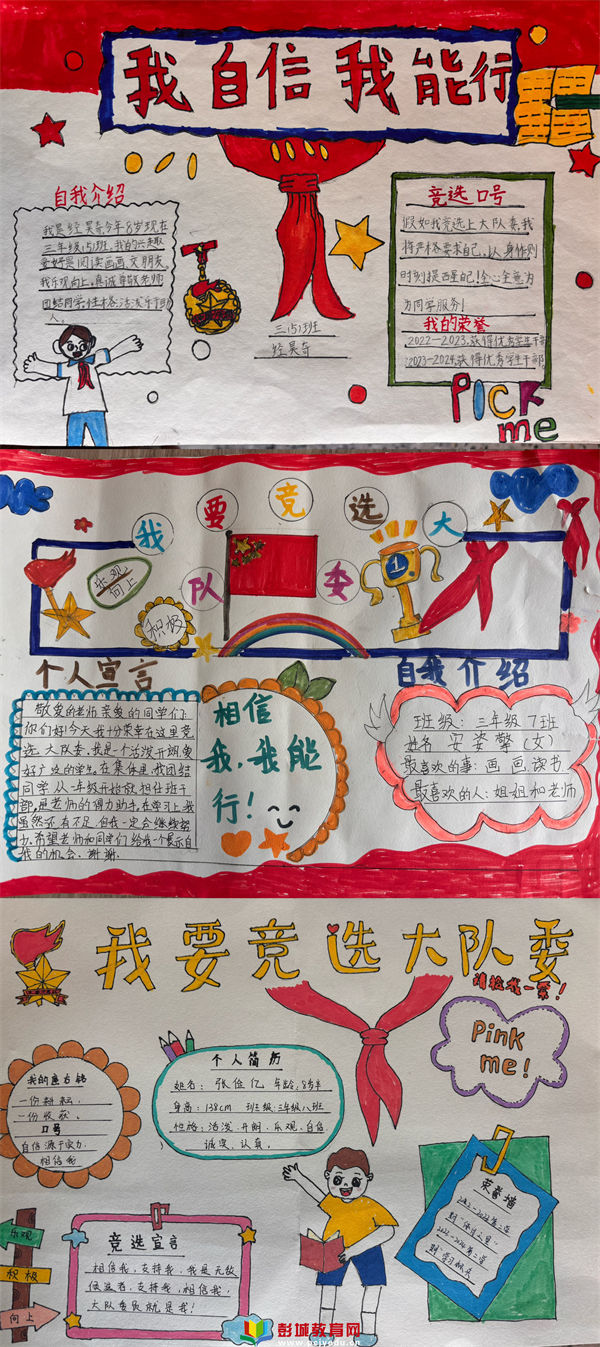 我自信我能行
自我介绍
我是经昊奇今年8岁现在
三年级(5)班,我的兴趣
爱好是阅读画画交朋友
我乐观向上,真诚尊敬老师
团结同学性格活泼乐于助
人。
三(5)班
经昊奇
竞选口号
假如我竞选上大队委,我
将严格要求自己,以身作则
时刻提醒自己!全心全意为
为同学服务!
我的荣誉
2022—2023.获得优秀学生干部
2023-2024.获得优秀学生干部.
PICK
me
我要竞选大
队委
乐观
向上
积极
1
个人宣言
敬爱的老师亲爱的同学们:
你们好!今天我十分荣幸在这里竞
选大队委,我是一个活泼开朗爱
好广泛的学生。在集体里,我团结
同学,从一年级开始就担任班干
部,是老师的得力助手,在学习上,我
虽然还有不足,但我一定会继续努
力,希望老师和同学们给我一个展示自
我的机会。谢谢.
相信
我,我能
行!
自我介绍
班级:三年级7班
姓名 安姿擎(女)
最喜欢的事:画画.读书
最喜欢的人:姐姐和老师
我要竞选大队委
请投我一票!
Pink
me!
个人简历
姓名:张俊亿 年龄:8岁半
身高:138cm 班级:三年级八班
性格:活泼、开朗、乐观、自信
诚实、认真。
一份耕耘,
一份收获。
口号
自信源于实力,
相信我
荣誉墙
乐观
积极
向上
竞选宣言
相信我,支持我,我是无敌
候选者,支持我,相信我,
大队委员就是我!
彭城教育网